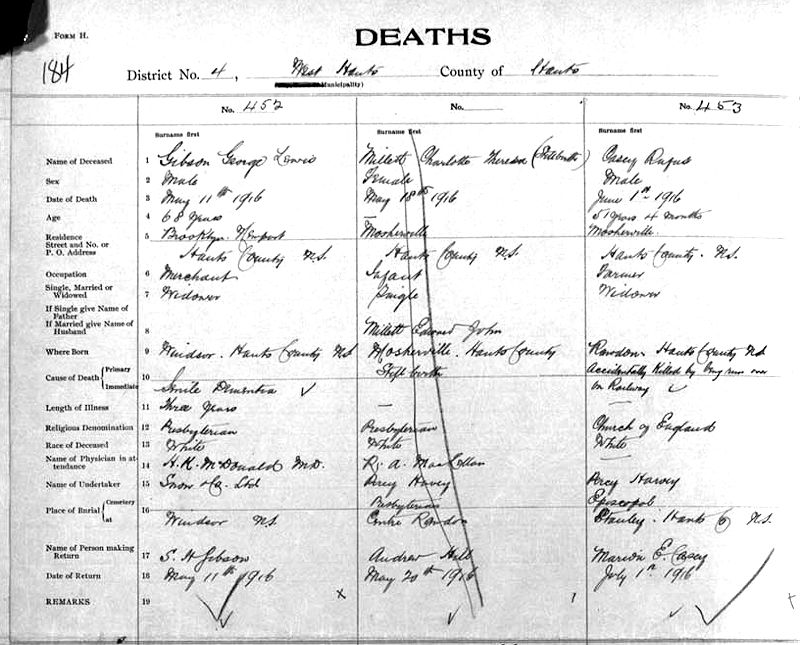 FORM H.
DEATHS
184
District No. 4, West Hants County of Hants
(Municipality)
No. 452 No. No. 453
Surname first Surname first Surname first
Name of Deceased 1 Gibson George Lewis Millett Charlotte Theresa (Stillbirth) Casey Rufus
Sex 2 Male Female Male
Date of Death 3 May 11th 1916 May 18th 1916 June 1st 1916
Age 4 68 years — 51 years 4 months
Residence 5 Brooklyn. Newport Mosherville Mosherville.
Street and No. or
P. O. Address Hants County N.S. Hants County N.S. Hants County. N.S.
Occupation 6 Merchant Infant Farmer
Single, Married or
Widowed 7 Widower Single Widower
If Single give Name of
Father
If Married give Name of
Husband 8 Millett Edward John
Where Born 9 Windsor. Hants County N.S. Mosherville. Hants County Rawdon. Hants County N.S.
Cause of Death { Primary 10 Still birth Accidentally killed by being run over
Immediate Senile Dementia on Railway
Length of Illness 11 Three years — —
Religious Denomination 12 Presbyterian Presbyterian Church of England
Race of Deceased 13 White White White
Name of Physician in at-
tendance 14 H. K. McDonald M.D. R. A. MacLellan —
Name of Undertaker 15 Snow & Co. Ltd Percy Harvey Percy Harvey
Place of Burial { Cemetery 16 Presbyterian Episcopal
at Windsor N.S. Centre Rawdon Stanley. Hants Co N.S.
Name of Person making
Return 17 S. H Gibson Andrew Hill Marion E. Casey
Date of Return 18 May 11th 1916 May 20th 1916 July 1st 1916
REMARKS 19